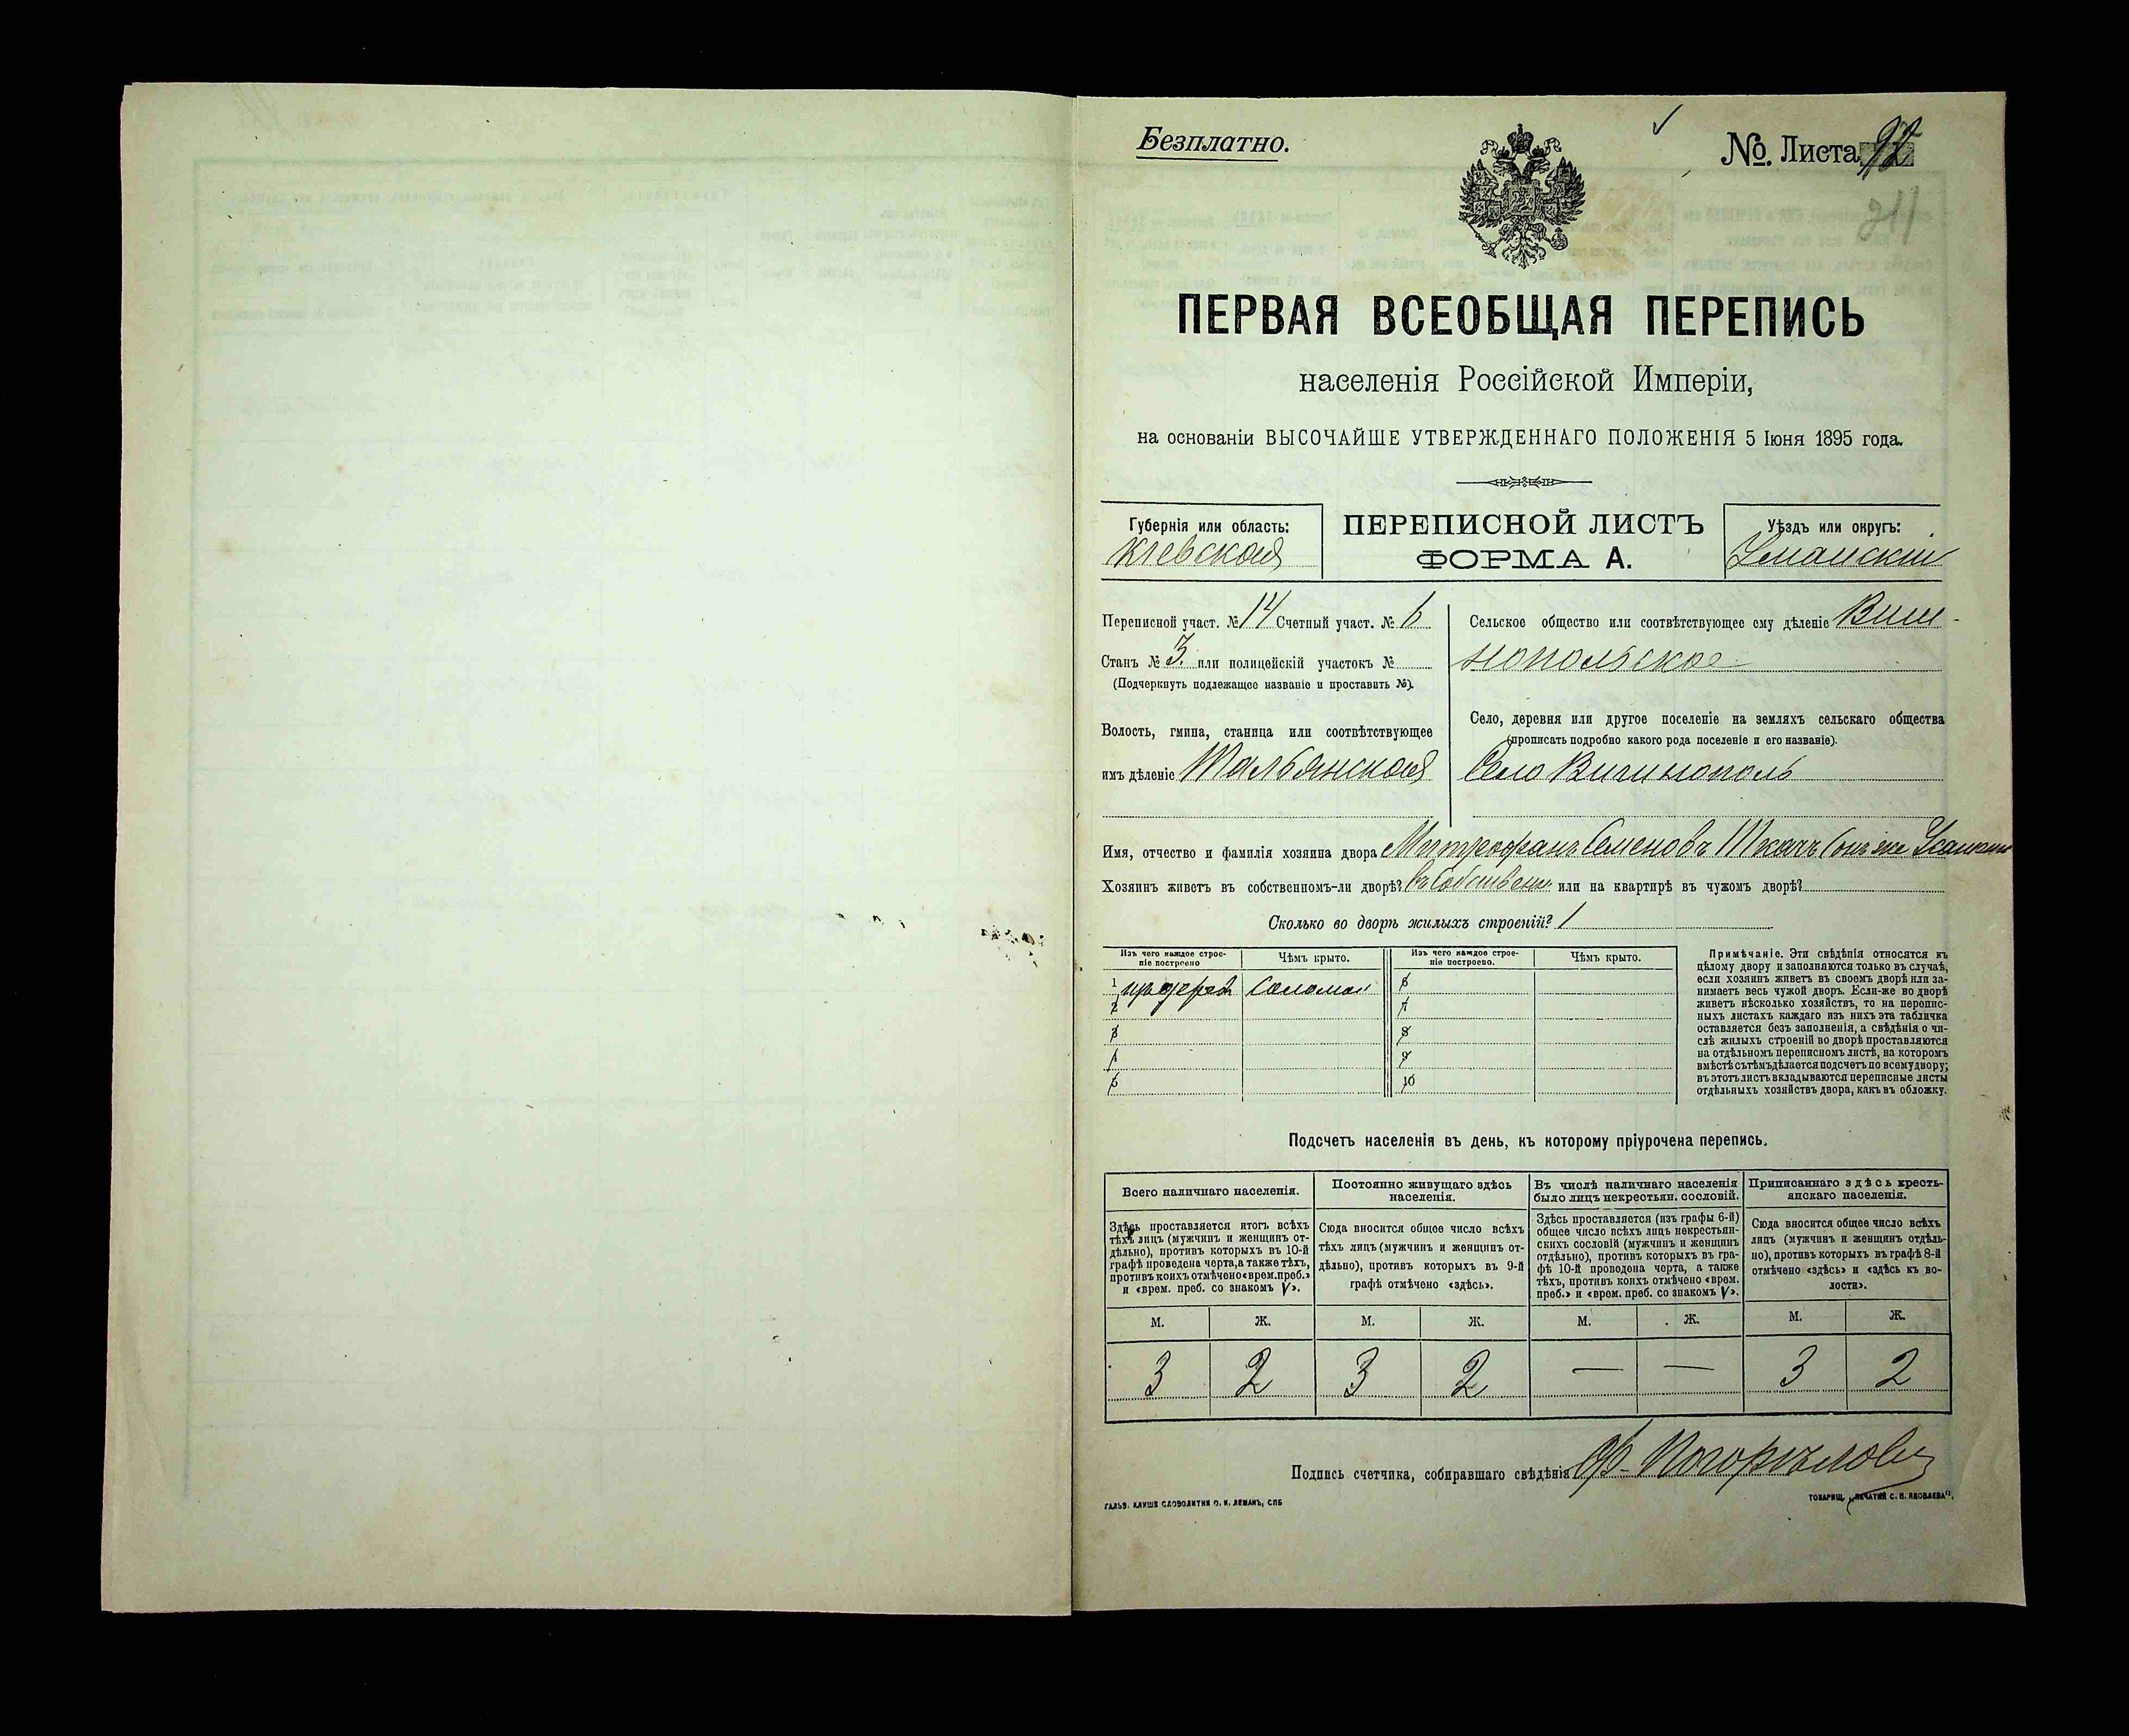 Безплатно.
No. Листа 92
211
ПЕРВАЯ ВСЕОБЩАЯ ПЕРЕПИСЬ
населенія Россійской Имперіи,
на основаніи ВЫСОЧАЙШЕ УТВЕРЖДЕННАГО ПОЛОЖЕНІЯ 5 Іюня 1895 года.
Губернія или область:
Кіевская
ПЕРЕПИСНОЙ ЛИСТЪ
ФОРМА А.
Уѣздъ или округъ:
Уманскій
Переписной участ. № 14 Счетный участ. № 6
Станъ № 3. или полицейскій участокъ №
(Подчеркнуть подлежащее названіе и проставить №).
Волость, гмина, станица или соотвѣтствующее
имъ дѣленіе Тальянская
Сельское общество или соотвѣтствующее ему дѣленіе Виш-
нопольское
Село, деревня или другое поселеніе на земляхъ сельскаго общества
(прописать подробно какого рода поселеніе и его названіе).
Село Вишнополь
Имя, отчество и фамилія хозяина двора Митрофанъ Семеновъ Ткачъ (онъ же
Хозяинъ живетъ въ собственномъ-ли дворѣ? въ собственн. или на квартирѣ въ чужомъ дворѣ?
Сколько во дворѣ жилыхъ строеній? 1
Изъ чего каждое строе-
ніе построено
Чѣмъ крыто.
Изъ чего каждое строе-
ніе построено.
Чѣмъ крыто.
1 Соломой 6
2 7
3 8
4 9
5 10
Примѣчаніе. Эти свѣдѣнія относятся къ
цѣлому двору и заполняются только въ случаѣ,
если хозяинъ живетъ въ своемъ дворѣ или за-
нимаетъ весь чужой дворъ. Если-же во дворѣ
живетъ нѣсколько хозяйствъ, то на перепис-
ныхъ листахъ каждаго изъ нихъ эта табличка
оставляется безъ заполненія, а свѣдѣнія о чи-
слѣ жилыхъ строеній во дворѣ проставляются
на отдѣльномъ переписномъ листѣ, на которомъ
вмѣстѣ съ тѣмъ дѣлается подсчетъ по всему двору;
въ этотъ листъ вкладываются переписные листы
отдѣльныхъ хозяйствъ двора, какъ въ обложку.
Подсчетъ населенія въ день, къ которому пріурочена перепись.
Всего наличнаго населенія.
Здѣсь проставляется итогъ всѣхъ
тѣхъ лицъ (мужчинъ и женщинъ от-
дѣльно), противъ которыхъ въ 10-й
графѣ проведена черта, а также тѣхъ,
противъ коихъ отмѣчено «врем. преб.»
и «врем. преб. со знакомъ V».
Постоянно живущаго здѣсь
населенія.
Сюда вносится общее число всѣхъ
тѣхъ лицъ (мужчинъ и женщинъ от-
дѣльно), противъ которыхъ въ 9-й
графѣ отмѣчено «здѣсь».
Въ числѣ наличнаго населенія
было лицъ некрестьян. сословій.
Здѣсь проставляется (изъ графы 6-й)
общее число всѣхъ лицъ некрестьян-
скихъ сословій (мужчинъ и женщинъ
отдѣльно), противъ которыхъ въ гра-
фѣ 10-й проведена черта, а также
тѣхъ, противъ коихъ отмѣчено «врем.
преб.» и «врем. преб. со знакомъ V».
Приписаннаго здѣсь кресть-
янскаго населенія.
Сюда вносится общее число всѣхъ
лицъ (мужчинъ и женщинъ отдѣль-
но), противъ которыхъ въ графѣ 8-й
отмѣчено «здѣсь» и «здѣсь къ во-
лости».
М. Ж. М. Ж. М. Ж. М. Ж.
3 2 3 2 — — 3 2
Подпись счетчика, собиравшаго свѣдѣнія Погорѣловъ
ГАЛЬВ. КЛИШЕ СЛОВОЛИТНИ О. И. ЛЕМАНЪ, СПБ
ТОВАРИЩ. „ПЕЧАТНЯ С. П. ЯКОВЛЕВА",